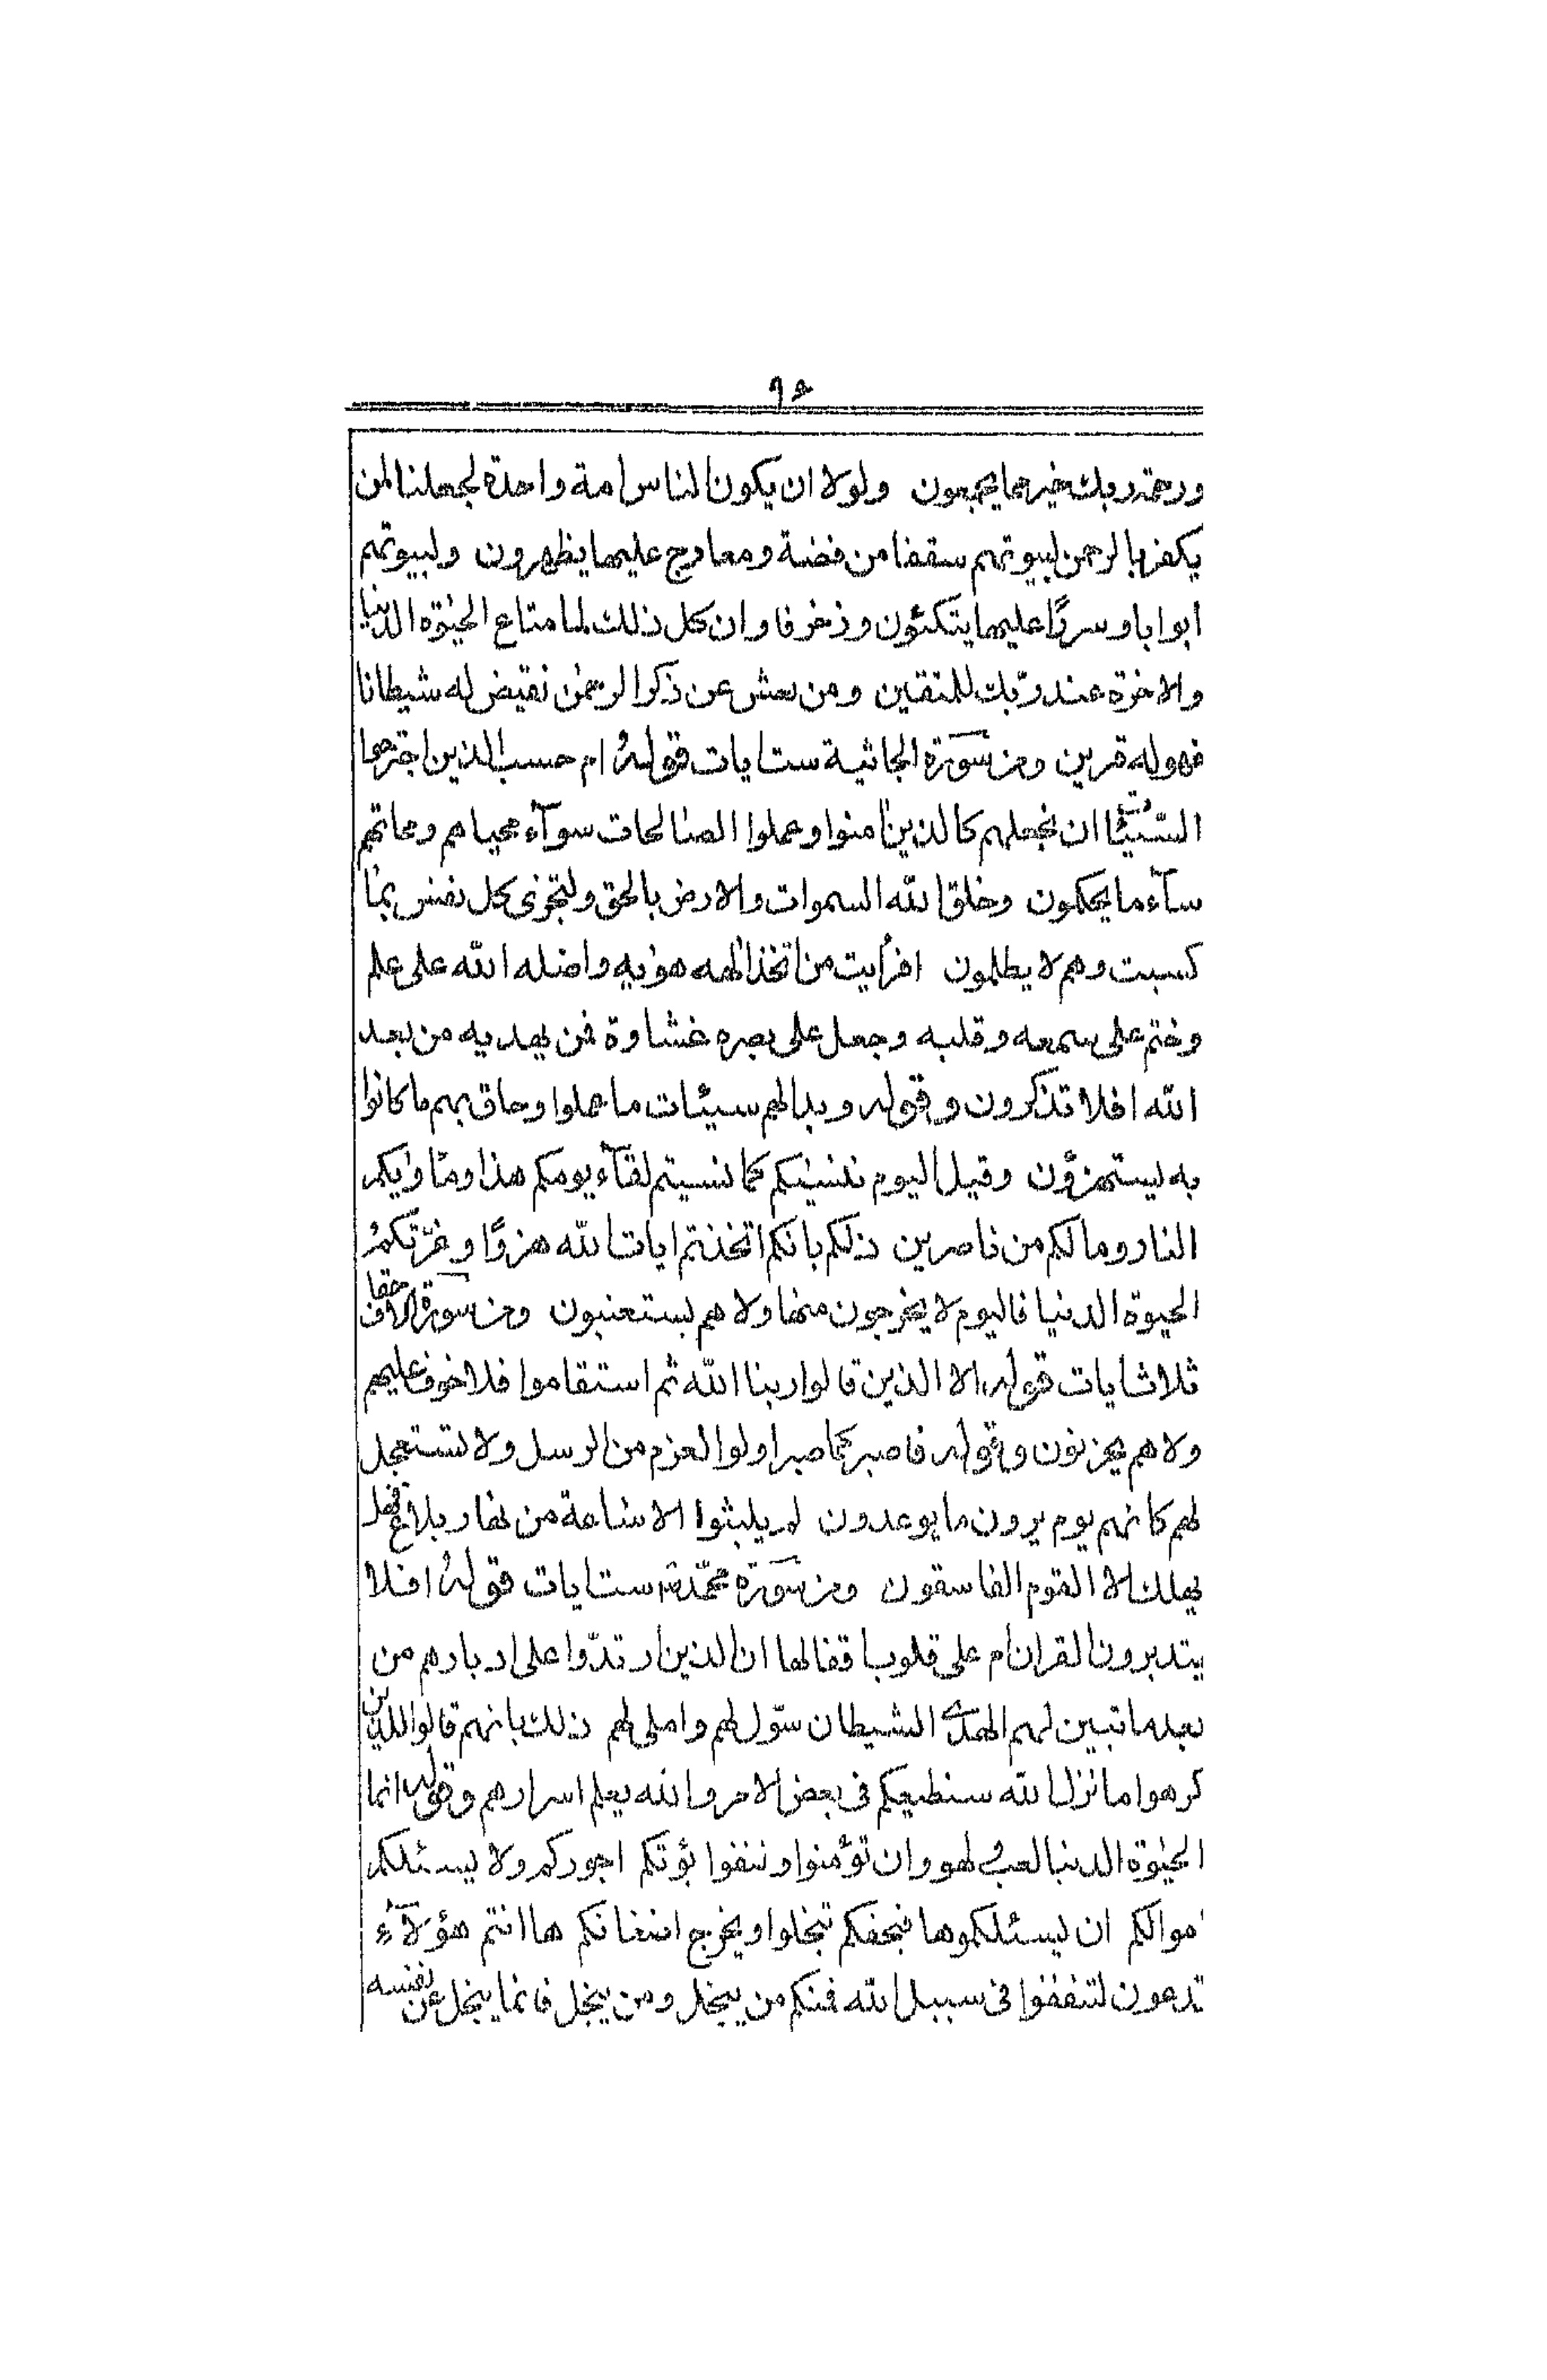 ٩٥
ورحمة ربك خير مما يجمعون ولولا ان يكون الناس امة واحدة لجعلنا لمن
يكفر بالرحمن لبيوتهم سقفا من فضة ومعارج عليها يظهرون ولبيوتهم
ابوابا وسررًا عليها يتكئون وزخرفا وان كل ذلك لما متاع الحيوة الدنيا
والاخرة عند ربّك للمتقين ومن يعش عن ذكر الرحمن نقيض له شيطانا
فهوله قرين ومن سورة الجاثية ست ايات قوله ام حسب الذين اجترحوا
السّيّئات ان نجعلهم كالذين امنوا وعملوا الصالحات سوآء محياهم ومماتهم
سآء ما يحكمون وخلق الله السموات والارض بالحق ولتجزى كل نفس بما
كسبت وهم لا يظلمون افرأيت من اتخذ الهه هويه واضله الله على علم
وختم على سمعه وقلبه وجعل على بصره غشاوة فمن يهديه من بعد
الله افلا تذكرون وقوله وبدالهم سيئات ما عملوا وحاق بهم ما كانوا
به يستهزؤن وقيل اليوم ننسيكم كما نسيتم لقآء يومكم هذا ومأويكم
النار وما لكم من ناصرين ذلكم بانكم اتخذتم ايات الله هزوًا وغرّتكم
الحيوة الدنيا فاليوم لا يخرجون منها ولا هم يستعتبون ومن سورة الاحقاف
ثلاث ايات قوله الا الذين قالوا ربنا الله ثم استقاموا فلا خوف عليهم
ولا هم يحزنون وقوله فاصبر كما صبر اولوا العزم من الرسل ولا تستعجل
لهم كانهم يوم يرون ما يوعدون لم يلبثوا الا ساعة من نهار بلاغ فهل
يهلك الا القوم الفاسقون ومن سورة محمّد ست ايات قوله افلا
يتدبرون القران ام على قلوب اقفالها ان الذين ارتدّوا على ادبارهم من
بعد ما تبين لهم الهدى الشيطان سوّل لهم واملى لهم ذلك بانهم قالوا للذين
كرهوا ما نزل الله سنطيعكم فى بعض الامر والله يعلم اسرارهم وقوله انما
الحيوة الدنيا لعب ولهو وان تؤمنوا وتتقوا يؤتكم اجوركم ولا يسئلكم
اموالكم ان يسئلكموها فيحفكم تبخلوا ويخرج اضغانكم ها انتم هؤلآء
تدعون لتنفقوا فى سبيل الله فمنكم من يبخل ومن يبخل فانما يبخل عن نفسه